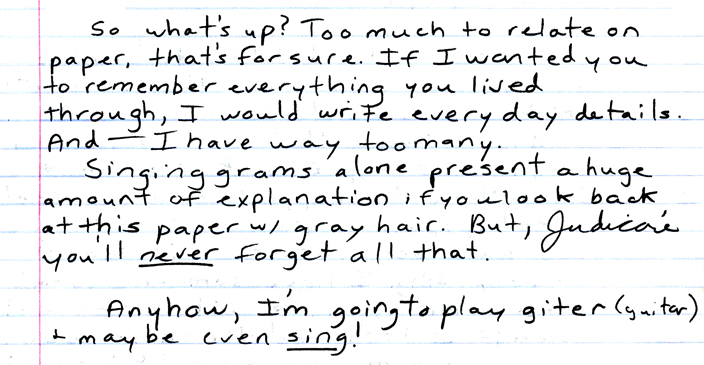 So what's up? Too much to relate on
paper, that's for sure. If I wanted you
to remember everything you lived
through, I would write every day details.
And — I have way too many.
Singing grams alone present a huge
amount of explanation if you look back
at this paper w/ gray hair. But, Judicaré
you'll never forget all that.
Anyhow, I'm going to play giter (guitar)
+ maybe even sing!